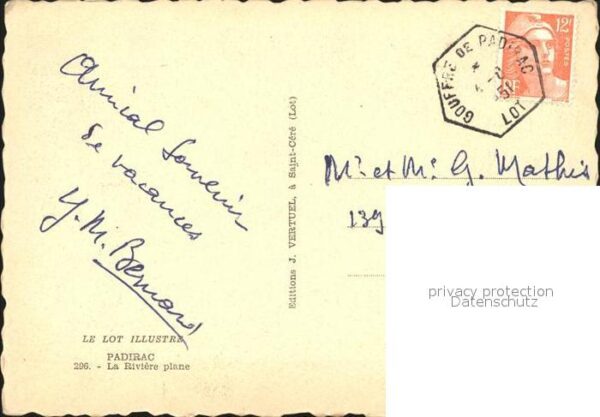 Amical Souvenir
de vacances
Y. M. Bernard
LE LOT ILLUSTRE
PADIRAC
296. - La Rivière plane
Editions J. VERTUEL, à Saint-Céré (Lot)
GOUFFRE DE PADIRAC
LOT
51
12F
POSTES
Mr et Me G. Mathis
139
privacy protection
Datenschutz